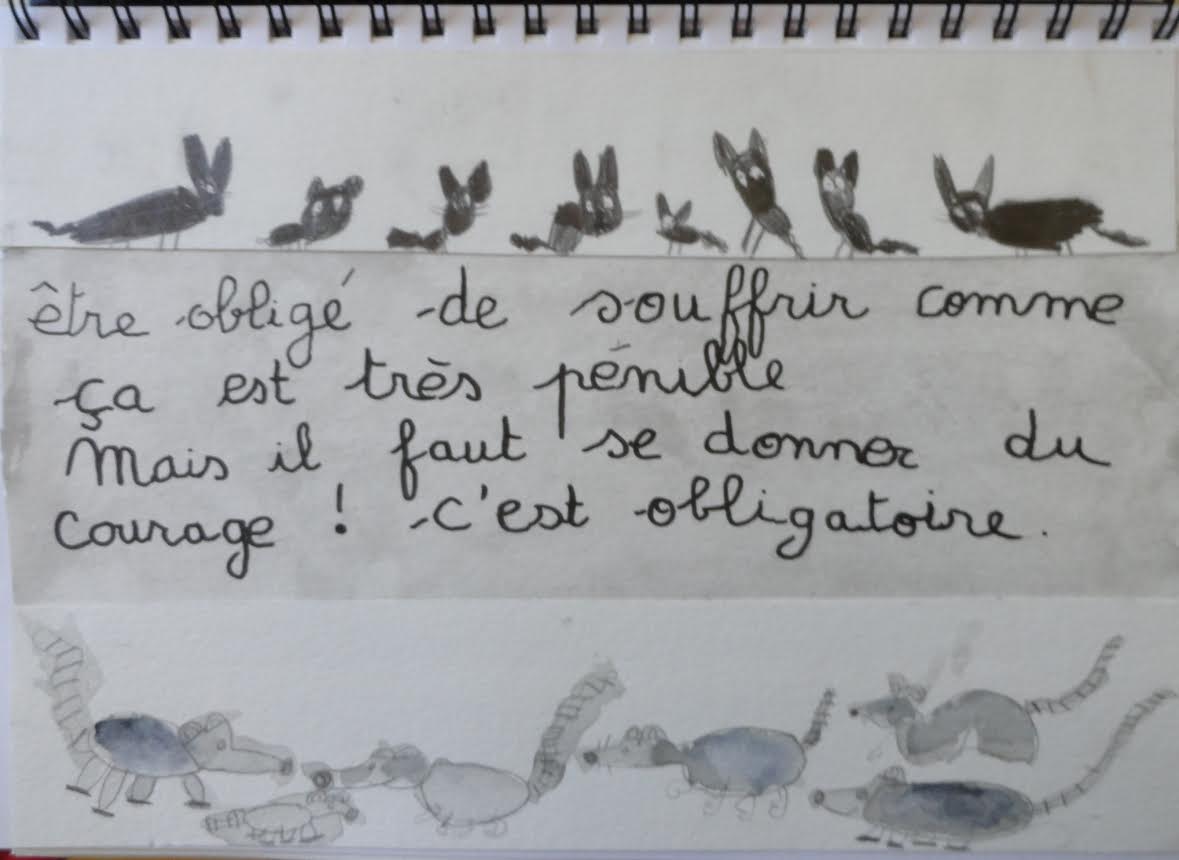 être obligé de souffrir comme
ça est très pénible
Mais il faut se donner du
courage ! c'est obligatoire.